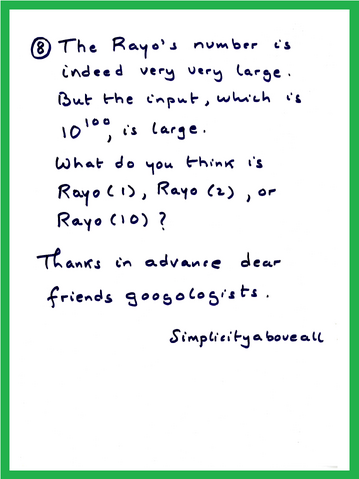 ⑧ The Rayo's number is
indeed very very large.
But the input, which is
10¹⁰⁰, is large.
What do you think is
Rayo(1), Rayo(2), or
Rayo(10)?
Thanks in advance dear
friends googologists.
Simplicityaboveall